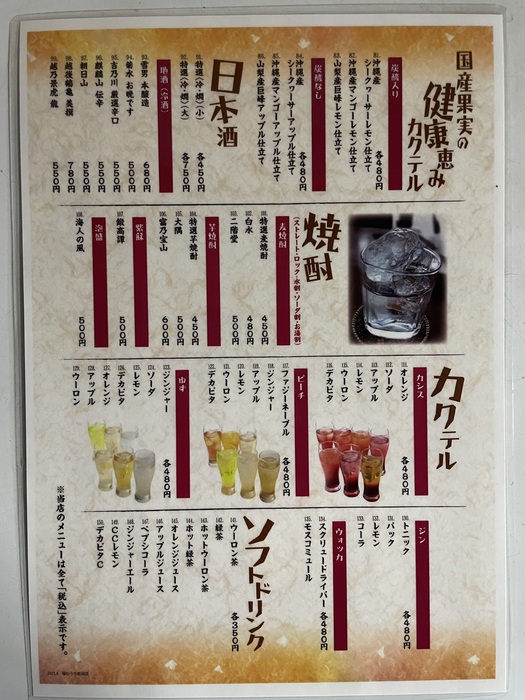 国産果実の
健康恵み
カクテル
炭酸入り
81. 沖縄産
シークヮーサーレモン仕立て
82. 沖縄産マンゴーレモン仕立て
83. 山梨産巨峰レモン仕立て
各480円
炭酸なし
84. 沖縄産
シークヮーサーアップル仕立て
85. 沖縄産マンゴーアップル仕立て
86. 山梨産巨峰アップル仕立て
各480円
日本酒
91. 特選(冷・燗)(小) 各450円
92. 特選(冷・燗)(大) 各750円
地酒(冷酒)
93. 雪男 本醸造 680円
94. 菊水 お晩です 500円
95. 吉乃川 厳選辛口 550円
96. 麒麟山 伝辛 550円
97. 朝日山 550円
98. 越後鶴亀 美撰 780円
99. 越乃景虎 龍 550円
焼酎
(ストレート・ロック・水割・ソーダ割・お湯割)
麦焼酎
特選麦焼酎 450円
白水 480円
二階堂 500円
芋焼酎
特選芋焼酎 450円
大隅 500円
富乃宝山 600円
紫蘇
鍛高譚 500円
泡盛
海人の風 500円
カクテル
カシス
オレンジ
ソーダ
アップル
レモン
ウーロン
デカビタ
各480円
ピーチ
ファジーネーブル
ジンジャー
アップル
レモン
ウーロン
デカビタ
各480円
ゆず
ジンジャー
ソーダ
レモン
デカビタ
オレンジ
アップル
ウーロン
各480円
ジン
トニック
バック
レモン
コーラ
各480円
ウォッカ
スクリュードライバー
モスコミュール
各480円
ソフトドリンク
141. ウーロン茶
142. 緑茶
143. ホットウーロン茶
144. ホット緑茶
145. オレンジジュース
146. アップルジュース
147. ペプシコーラ
148. ジンジャーエール
149. CCレモン
150. デカビタC
各350円
※当店のメニューは全て「税込」表示です。